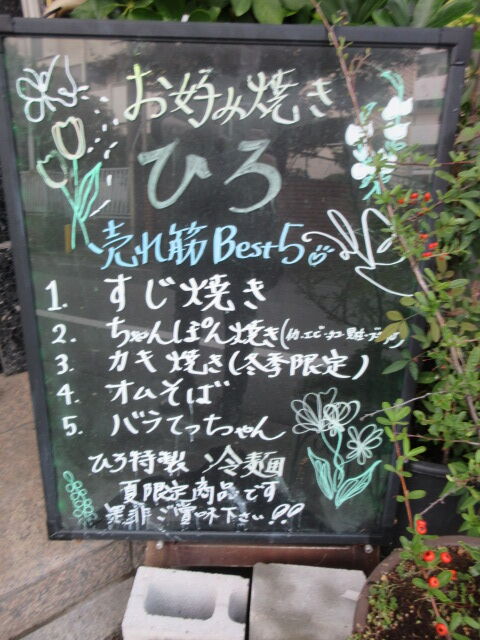 お好み焼き
ひろ
売れ筋Best5
1. すじ焼き
2. ちゃんぽん焼き
3. カキ焼き(冬季限定)
4. オムそば
5. バラてっちゃん
ひろ特製 冷麺
夏限定商品です
是非ご賞味下さい!!